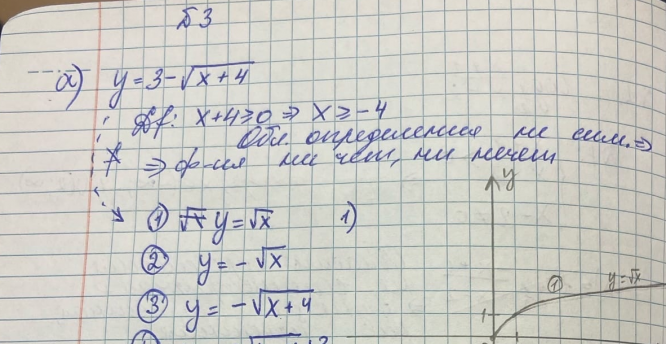 Б3
а) y = 3 - √(x+4)
Df: x+4 ≥ 0 ⇒ x ≥ -4
Обл. определения не сим. ⇒
⇒ ф-ия ни чет, ни нечет
① y = √x 1)
② y = -√x
③ y = -√(x+4)
y
① y = √x
1